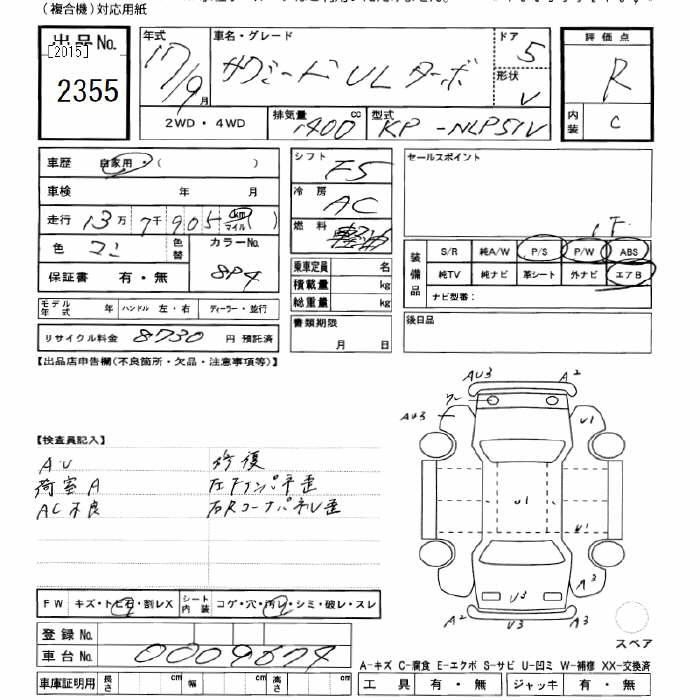 (複合機)対応用紙
出品No. 年式 車名・グレード ドア 評価点
[2015]
2355
17/9月 サクシード ULターボ 5 R
形状 V
2WD・4WD 排気量 1400 cc 型式 KP-NLP51V 内装 C
車歴 自家用・( ) シフト F5 セールスポイント
車検 年 月 冷房 AC
走行 13万7千905 km マイル ( ) 燃料 軽油
色 色替 カラーNo. 8P4
保証書 有・無
乗車定員 名
積載量 kg
総重量 kg
装備品 S/R 純A/W P/S P/W ABS
純TV 純ナビ 革シート 外ナビ エアB
ナビ型番:
モデル年式 年 ハンドル 左・右 ディーラー・並行
書類期限 月 日
後日品
リサイクル料金 8730 円 預託済
【出品店申告欄(不良箇所・欠品・注意事項等)】
AU3 A2
ワレ
AU3 U1
【検査員記入】
AU 修復
荷室A 左Fインパネ歪
AC不良 右RコーナパネU歪
U1
U1
A3 A3
U3
A2 U3 A3
FW キズ・トビ石・割レX シート内装 コゲ・穴・汚レ・シミ・破レ・スレ
スペア
登録No.
車台No. 0009674
A-キズ C-腐食 E-エクボ S-サビ U-凹ミ W-補修 XX-交換済
車庫証明用 長さ cm 幅 cm 高さ cm 工具 有・無 ジャッキ 有・無